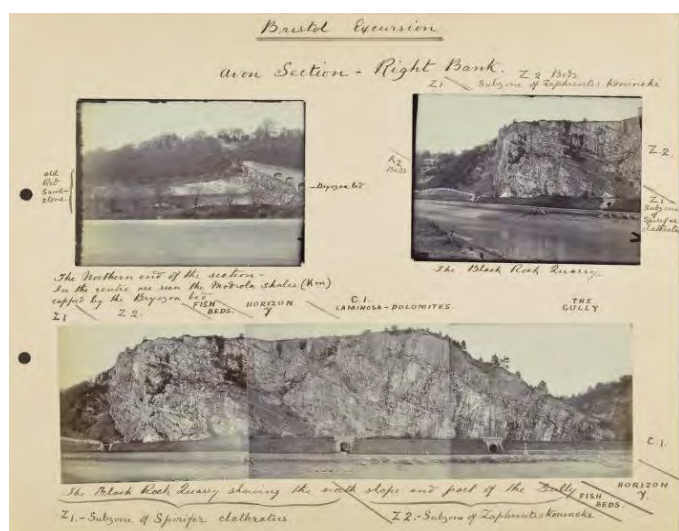 Bristol Excursion
Avon Section - Right Bank.
Z2 Beds
Z1 Subzone of Zaphrentis Konincki
old
Red
Sand-
stone
Bryozoa bed
K2
Beds
Z2.
Z1
Subzone
of
Spirifer
clathratus
The Northern end of the section -
In the centre are seen the Modiola shales (Km)
capped by the Bryozoa bed
The Black Rock Quarry
Z1 Z2.
FISH
BEDS.
HORIZON
γ
C.1.
LAMINOSA-DOLOMITES.
THE
GULLY
C.1.
The Black Rock Quarry showing the north slope and part of the Gully
FISH
BEDS.
HORIZON
γ.
Z1.-Subzone of Spirifer clathratus
Z2.-Subzone of Zaphrentis Konincki